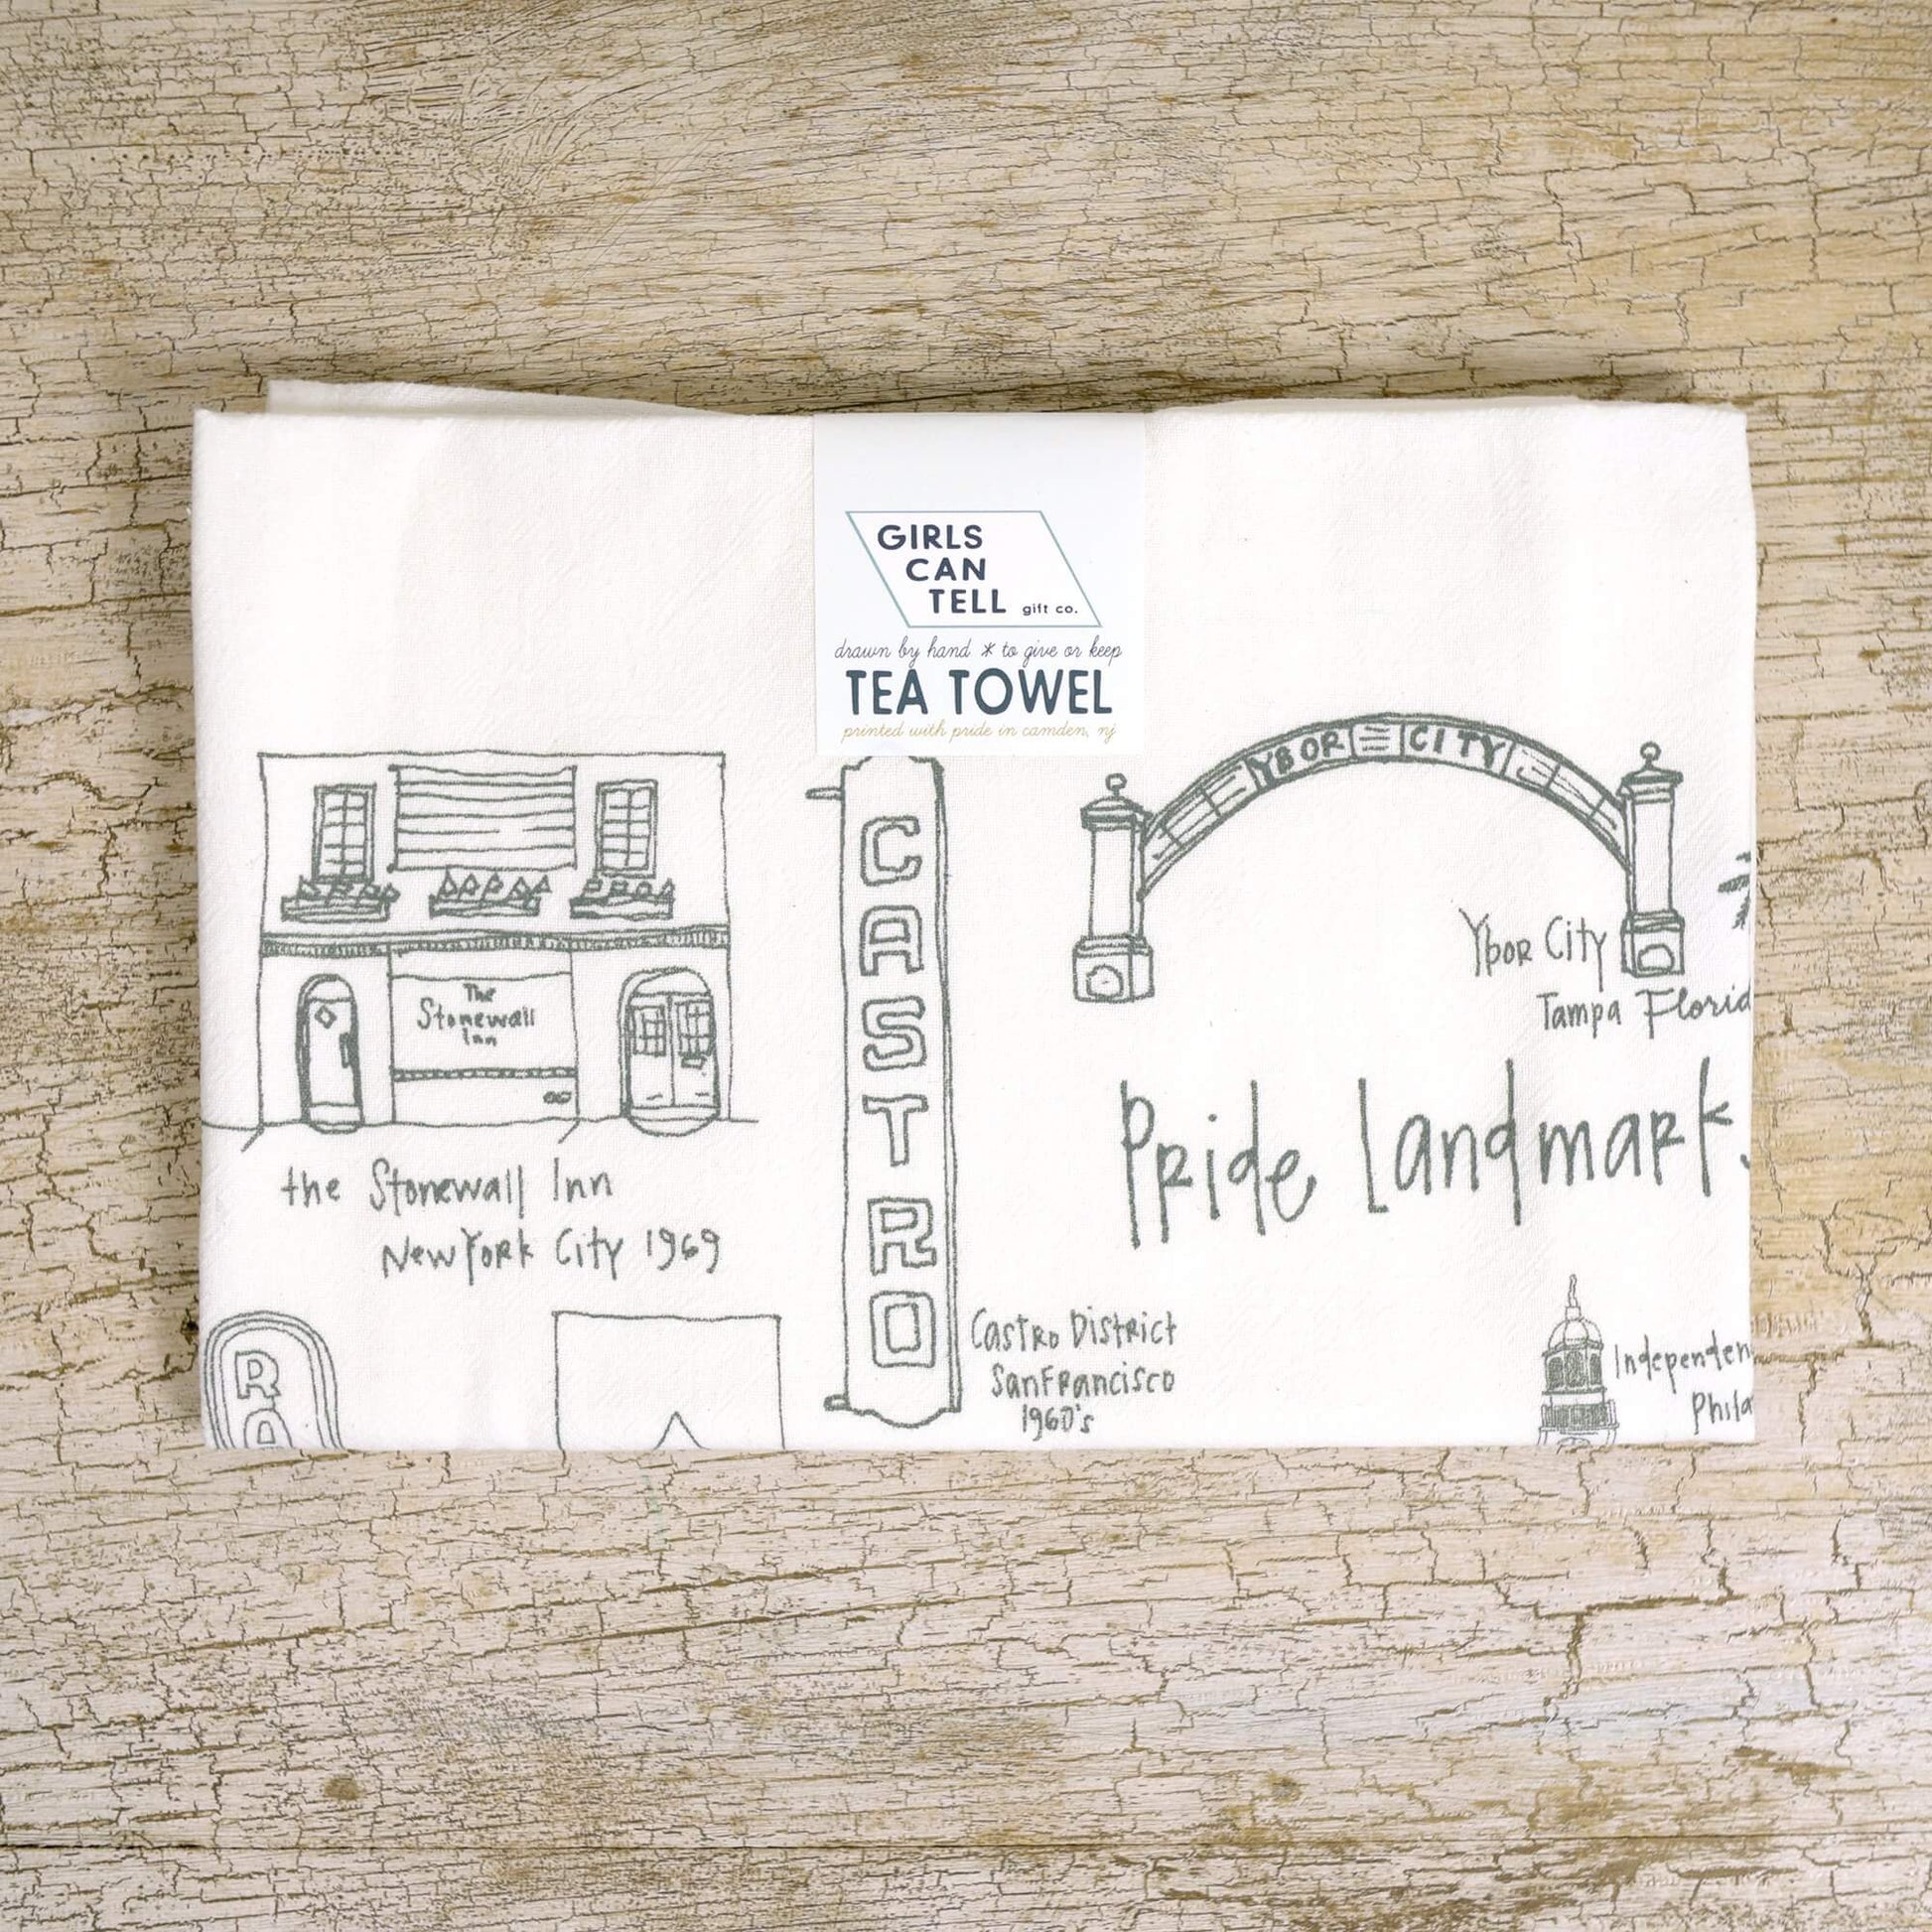 GIRLS
CAN
TELL gift co.
drawn by hand * to give or keep
TEA TOWEL
printed with pride in camden, nj
YBOR CITY
CASTRO
The
Stonewall
Inn
Ybor City
Tampa Florid
Pride Landmark
the Stonewall Inn
New York City 1969
Castro District
San Francisco
1960's
Independen
Phila
R